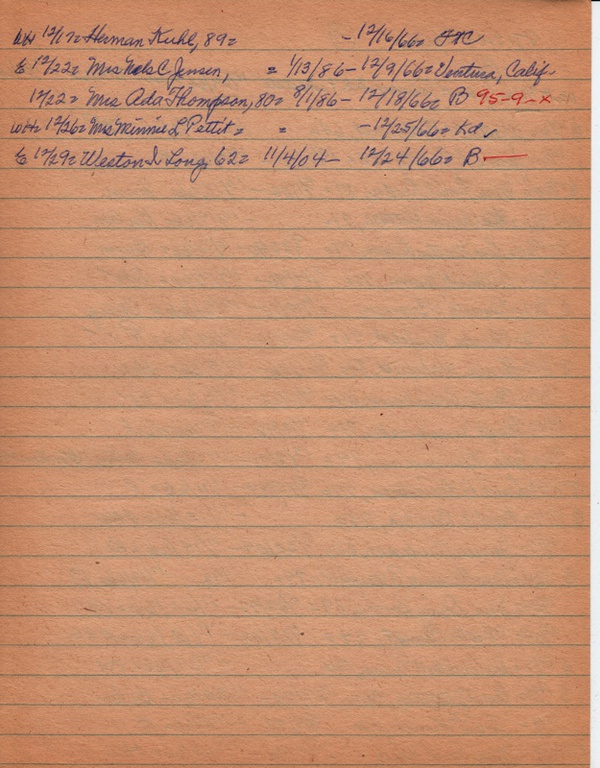 WH 12/17= Herman Kuhl, 89= - 12/16/66=
E 12/22= Mrs Nels C Jensen, = 1/13/86- 12/9/66= Ventura, Calif-
12/22= Mrs Ada Thompson, 80= 8/1/86- 12/18/66= B 95-9-x
WH= 12/26= Mrs Minnie L Pettit= = -12/25/66= Kd ✓
E 12/29= Weston I Long, 62= 11/4/04- 12/24/66= B